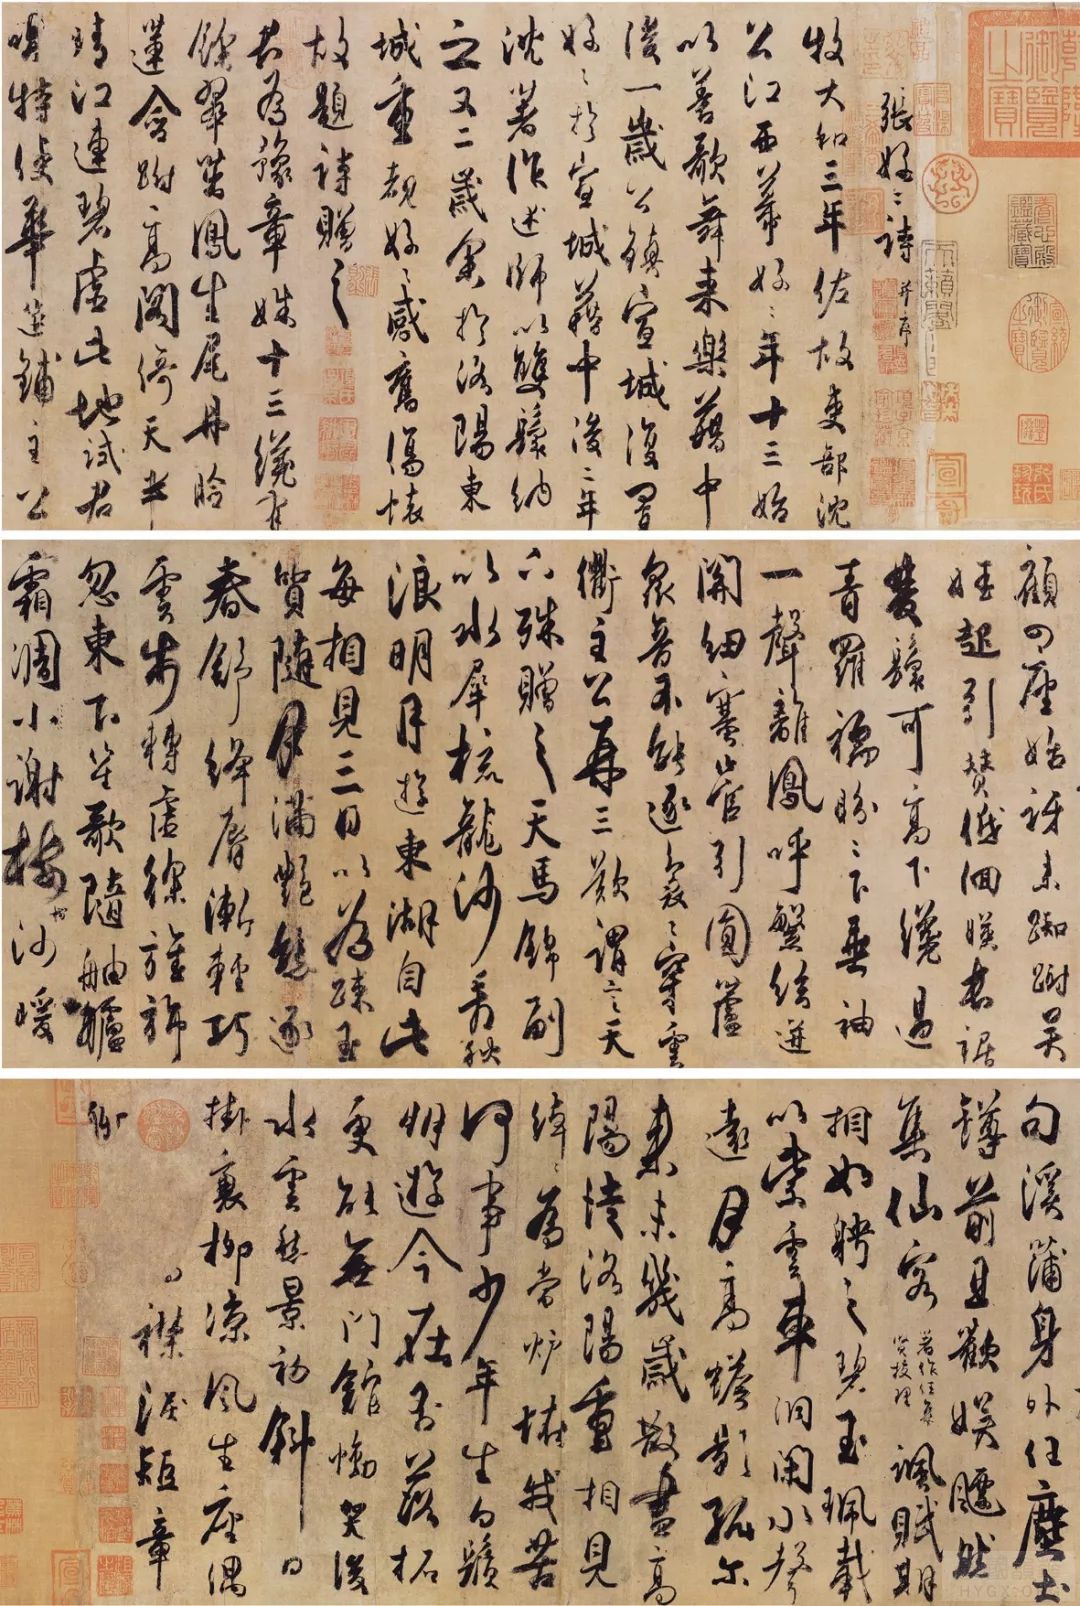 乾隆御覽之寶
養心殿鑑藏寶
宣統御覽之寶
天籟閣
張好〻詩并序
牧大和三年佐故吏部沈
公江西幕好〻年十三始
以善歌舞來樂籍中
後一歲公鎮宣城復置
好〻於宣城籍中後二年
沈著作述師以雙鬟納
之又二歲余於洛陽東
城重覩好〻感舊傷懷
故題詩贈之
君為豫章姝十三纔有
餘翠茁鳳生尾丹臉
蓮含跗高閣倚天半
晴江連碧虛此地試君
唱特使華筵鋪主公
顧四座始訝來踟躕吳
娃起引贊低徊暎長裾
雙鬟可高下纔過
青羅襦盼〻下垂袖
一聲離鳳呼繁弦迸
關紐塞管引圓蘆
衆音不能逐裊〻穿雲
衢主公再三歎謂言天
下殊贈之天馬錦副
以水犀梳龍沙看秋
浪明月遊東湖自此
每相見三日以為疎玉
質隨月滿艷態逐
春舒絳脣漸輕巧
雲步轉虛徐旌旆
忽東下笙歌隨舳艫
霜凋小謝樹沙暖
句溪蒲身外任塵土
罇前且歡娛飄然
集仙客著作任集賢校理諷賦期
相如聘之碧玉珮載
以紫雲車洞閉水聲
遠月高蟾影孤爾
來未幾歲散盡高
陽徒洛陽重相見
綽〻為當爐怪我苦
何事少年生白鬚
朋遊今在否落拓
更能無門館慟哭後
水雲愁景初斜日
掛衰柳涼風生座隅
襟淚短章
聊